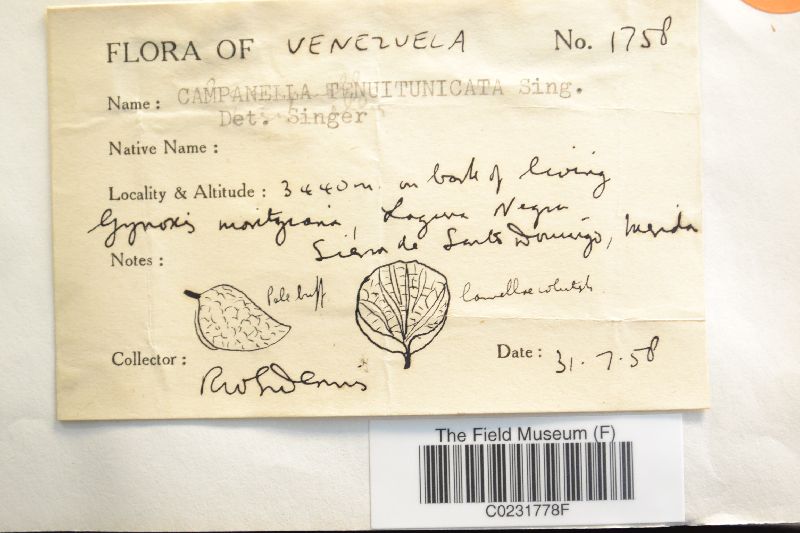 FLORA OF VENEZUELA No. 1758
Name: CAMPANELLA TENUITUNICATA Sing.
Det. Singer
Native Name:
Locality & Altitude: 3440m. on bark of living
Gynoxis moritziana, Laguna Negra
Sierra de Santo Domingo, Merida
Notes:
Pale buff
lamellae whitish
Collector: RWGDennis
Date: 31.7.58
The Field Museum (F)
C0231778F